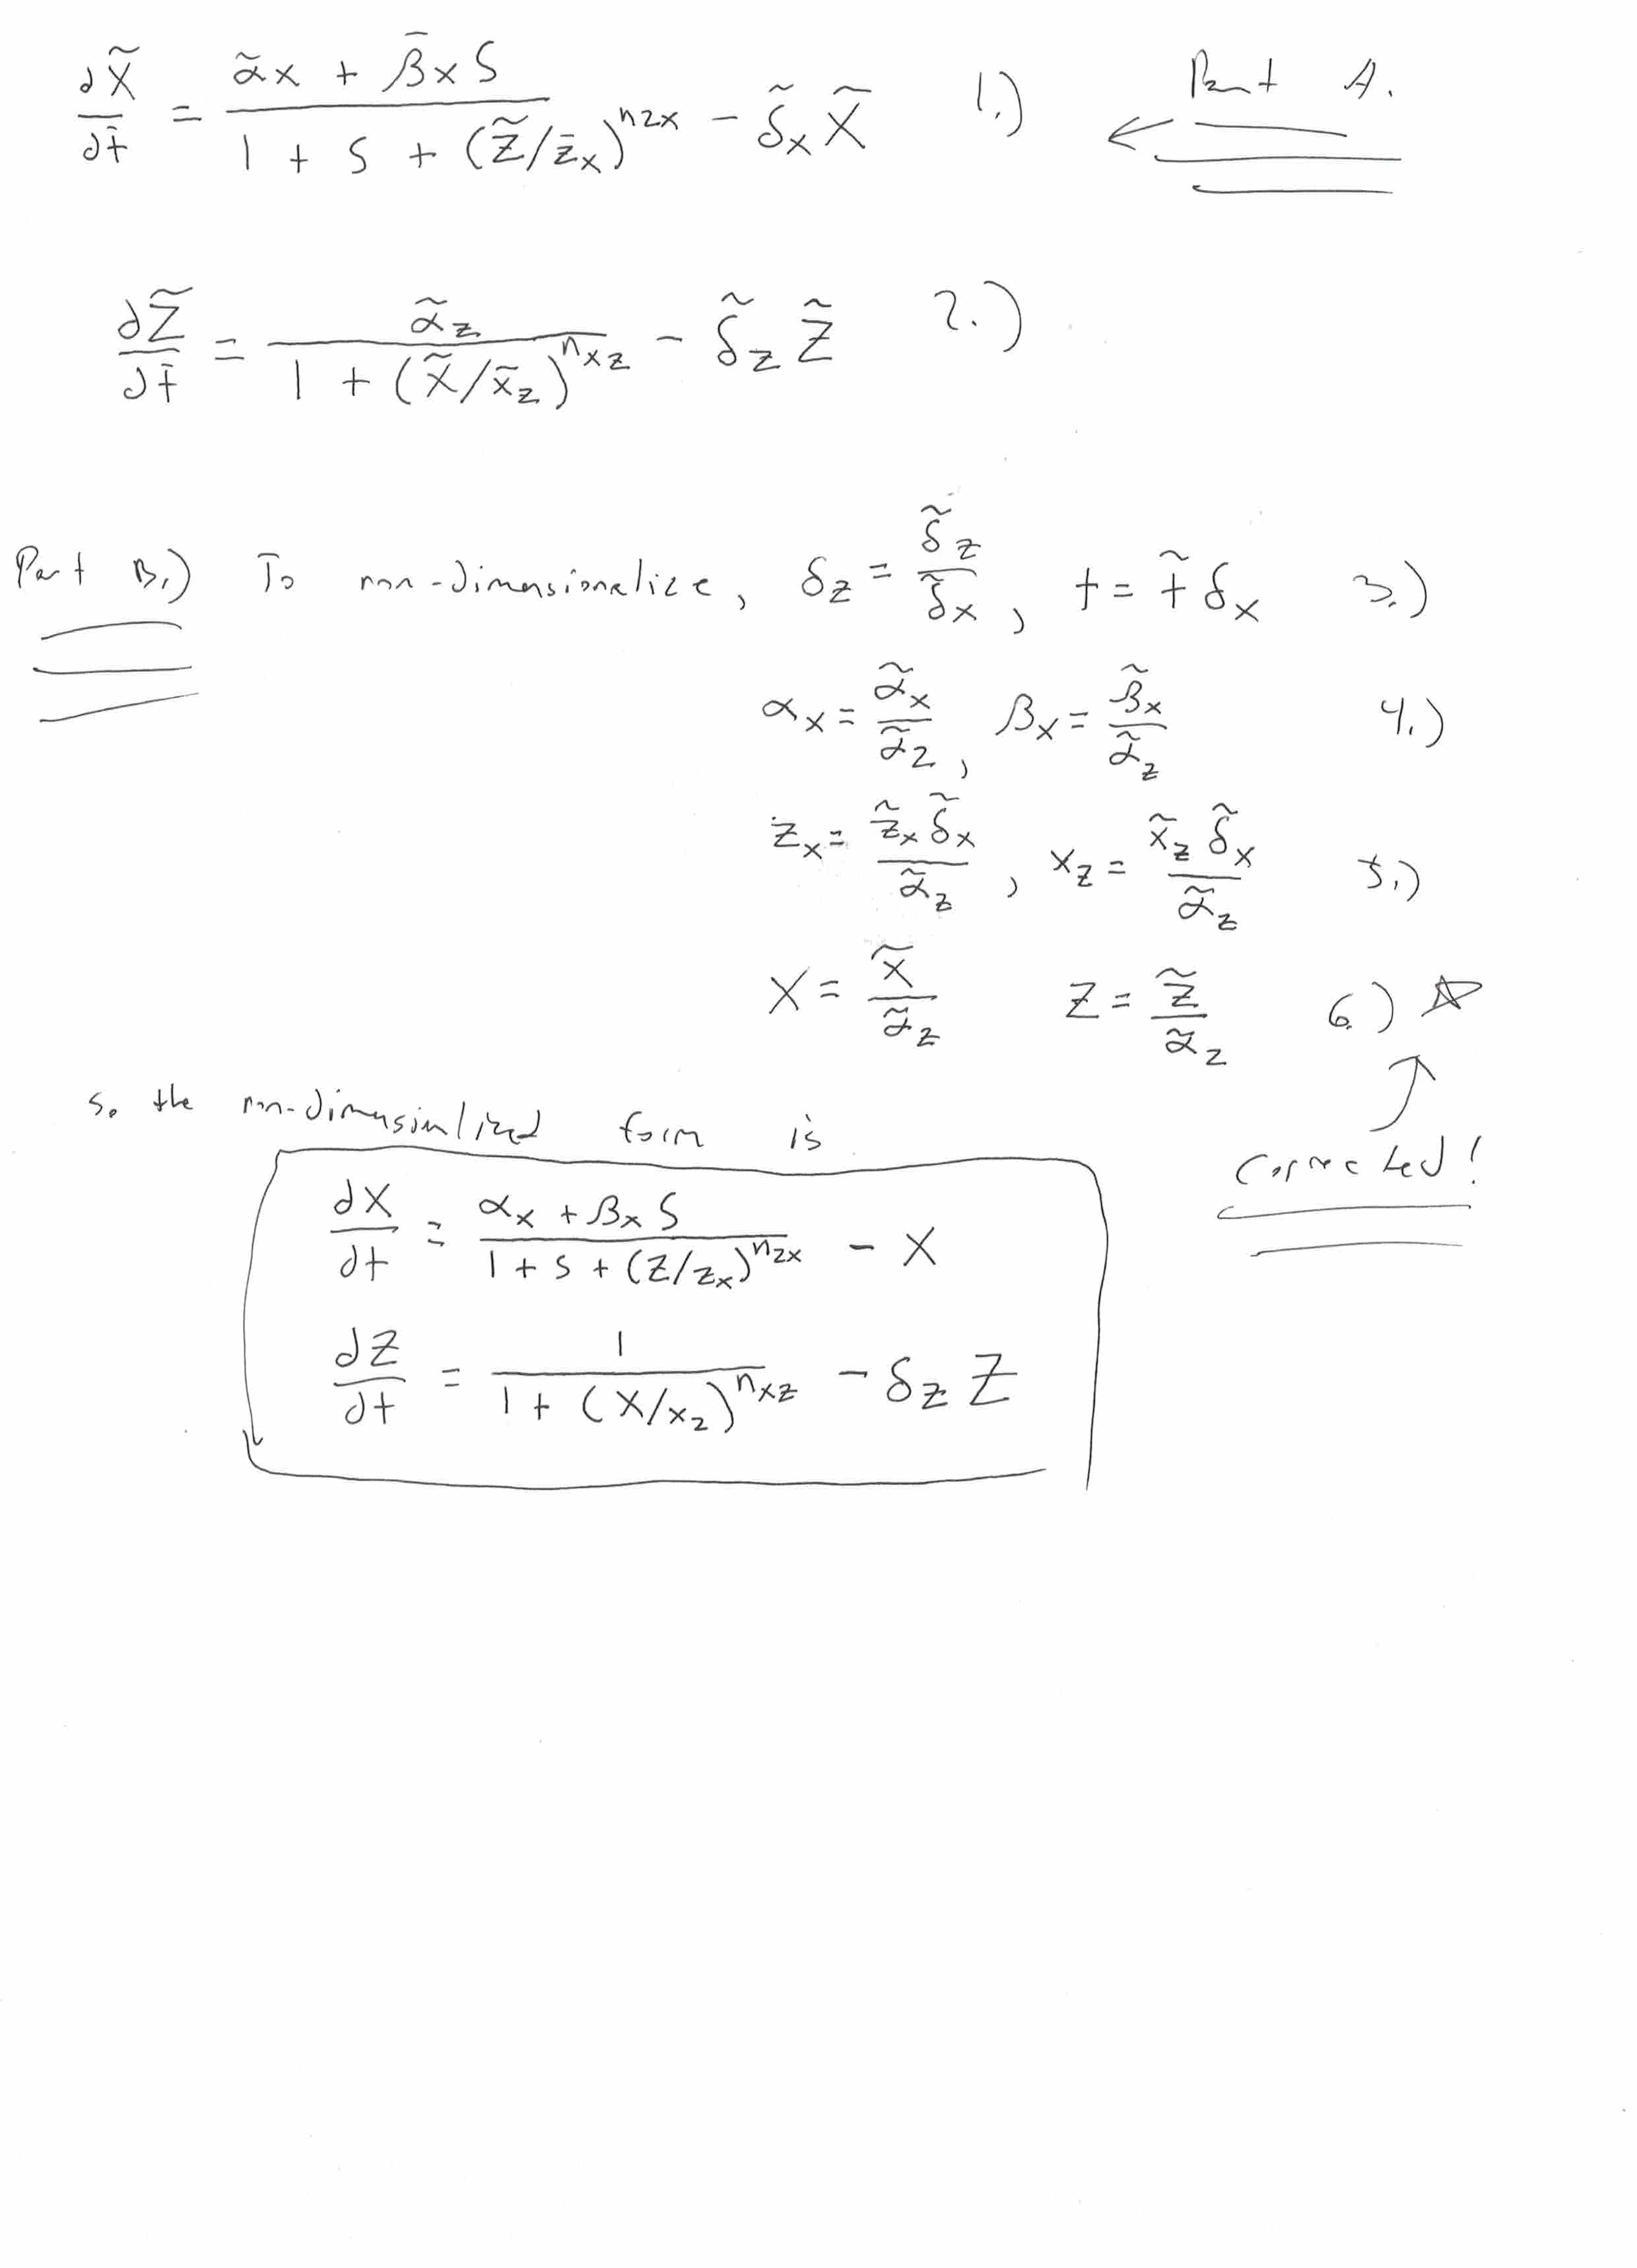 dX̃/dt̃ = (α̃x + β̄x S) / (1 + S + (Z̃/z̄x)^nzx) − δ̃x X̃ 1.) Part A.
dZ̃/dt̃ = α̃z / (1 + (X̃/x̃z)^nxz) − δ̃z Z̃ 2.)
Part B.) To non-dimensionalize, δz = δ̃z/δ̃x, t = t̃ δx 3.)
αx = α̃x/α̃z, βx = β̃x/α̃z 4.)
zx = z̃x δ̃x/α̃z, xz = x̃z δ̃x/α̃z 5.)
X = x̃/α̃z Z = z̃/α̃z 6.) ☆
so the non-dimensionlized form is
Corrected!
dX/dt = (αx + βx S) / (1 + S + (Z/zx)^nzx) − X
dZ/dt = 1 / (1 + (X/xz)^nxz) − δz Z